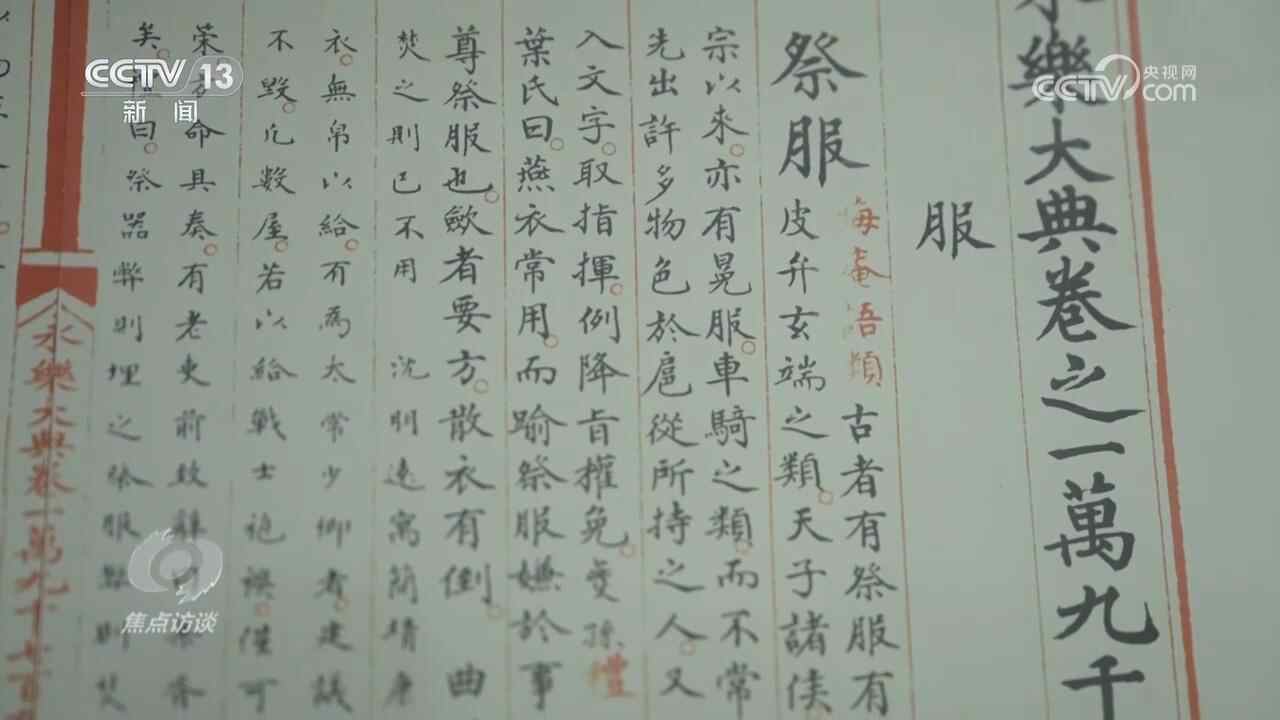 永樂大典卷之一萬九千
服
祭服
晦庵語類古者有祭服有
皮弁玄端之類。天子諸侯
宗以來。亦有冕服。車騎之類。而不常
先出許多物色於扈從所持之人。又
入文字。取指揮。例降旨權免。孫禮
葉氏曰。燕衣常用。而踰祭服嫌於事
尊祭服也。斂者要方。散衣有倒。曲
焚之則已不用 沈則遠寓簡靖康
衣。無帛以給。有為太常少卿者。建議
不毀。凡數屋。若以給戰士袍襖。僅可
命具奏。有老吏前致辭曰
矣。禮曰。祭器弊則埋之祭服弊則焚
永樂大典卷一萬九千七百
CCTV 13
新闻
CCTV 央视网
com
焦点访谈